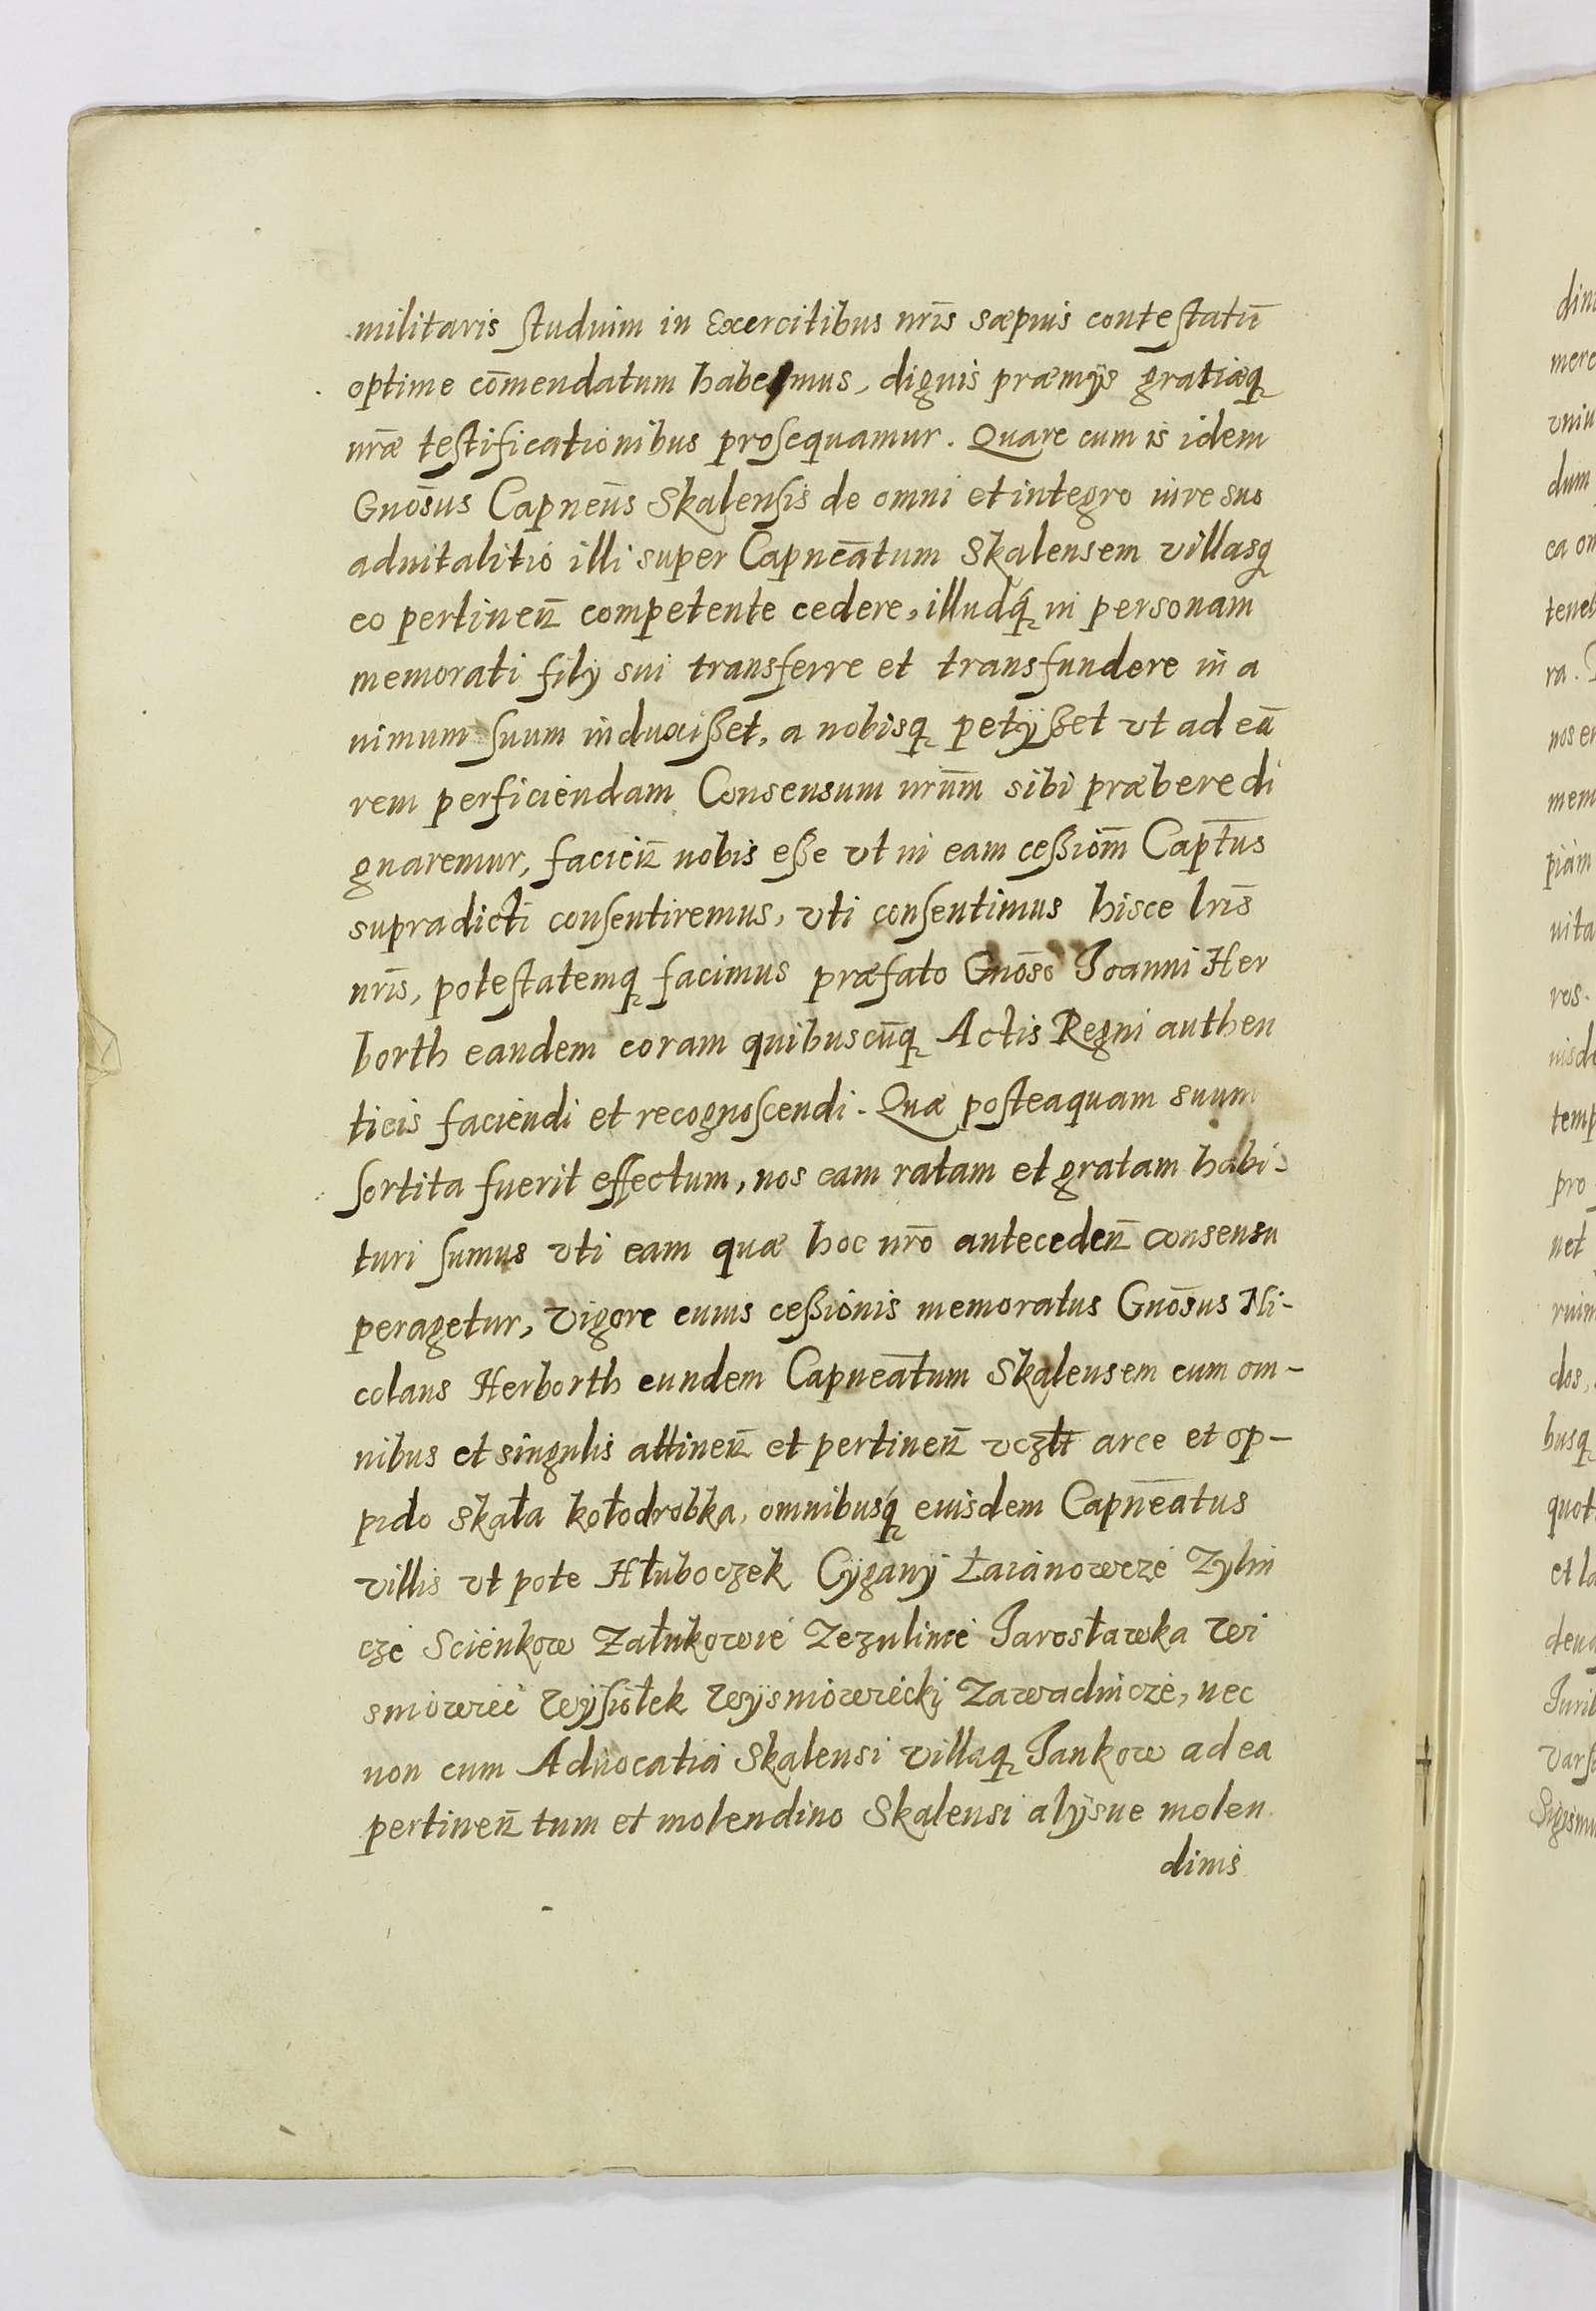 militaris studium in Exercitibus nr̄is sæpius contestatū
optime cōmendatum habemus, dignis præmÿs gratiæq
nr̄æ testificationibus prosequamur. Quare cum is idem
Gnōsus Capneūs Skalensis de omni et integro iure suo
aduitalitio illi super Capneātum Skalensem villasq
eo pertineñ competente cedere, illudq́ in personam
memorati filÿ sui transferre et transfundere in a
nimum suum induxißet, a nobisq petÿßet vt ad eā
rem perficiendam Consensum nrūm sibi præbere di
gnaremur, facieñ nobis eße vt in eam ceßiōm Capt̄us
supradicti consentiremus, vti consentimus hisce lr̄is
nr̄is, potestatemq facimus præfato Gnōso Joanni Her
borth eandem coram quibuscūq Actis Regni authen
ticis faciendi et recognoscendi. Quæ posteaquam suum
sortita fuerit effectum, nos eam ratam et gratam habi-
turi sumus vti eam quæ hoc nr̄o antecedeñ consensu
peragetur, Vigore cuius ceßionis memoratus Gnōsus Ni-
colaus Herborth eundem Capneātum Skalensem cum om-
nibus et singulis attineñ et pertineñ vczłt arce et op-
pido Skała kołodrobka, omnibusq́ euisdem Capnēatus
villis vt pote Hłuboczek Cÿganÿ Łaianowcze Zylin
cze Scienkow Załukowie Zezulince Jarosławka Wi
sniowiec Wÿsiołek Wÿsniowieckÿ Zawadincze, nec
non cum Aduocatia Skalensi villaq Jankow ad ea
pertineñ tum et molendino Skalensi alÿsue molen
dinis
dim
mere
vniu
dum
ca om
teneb
ra.
nos en
mem
piam
uita
ros.
temp
pro
net
dos,
busq
quot
et la
Varsa
Sigismu